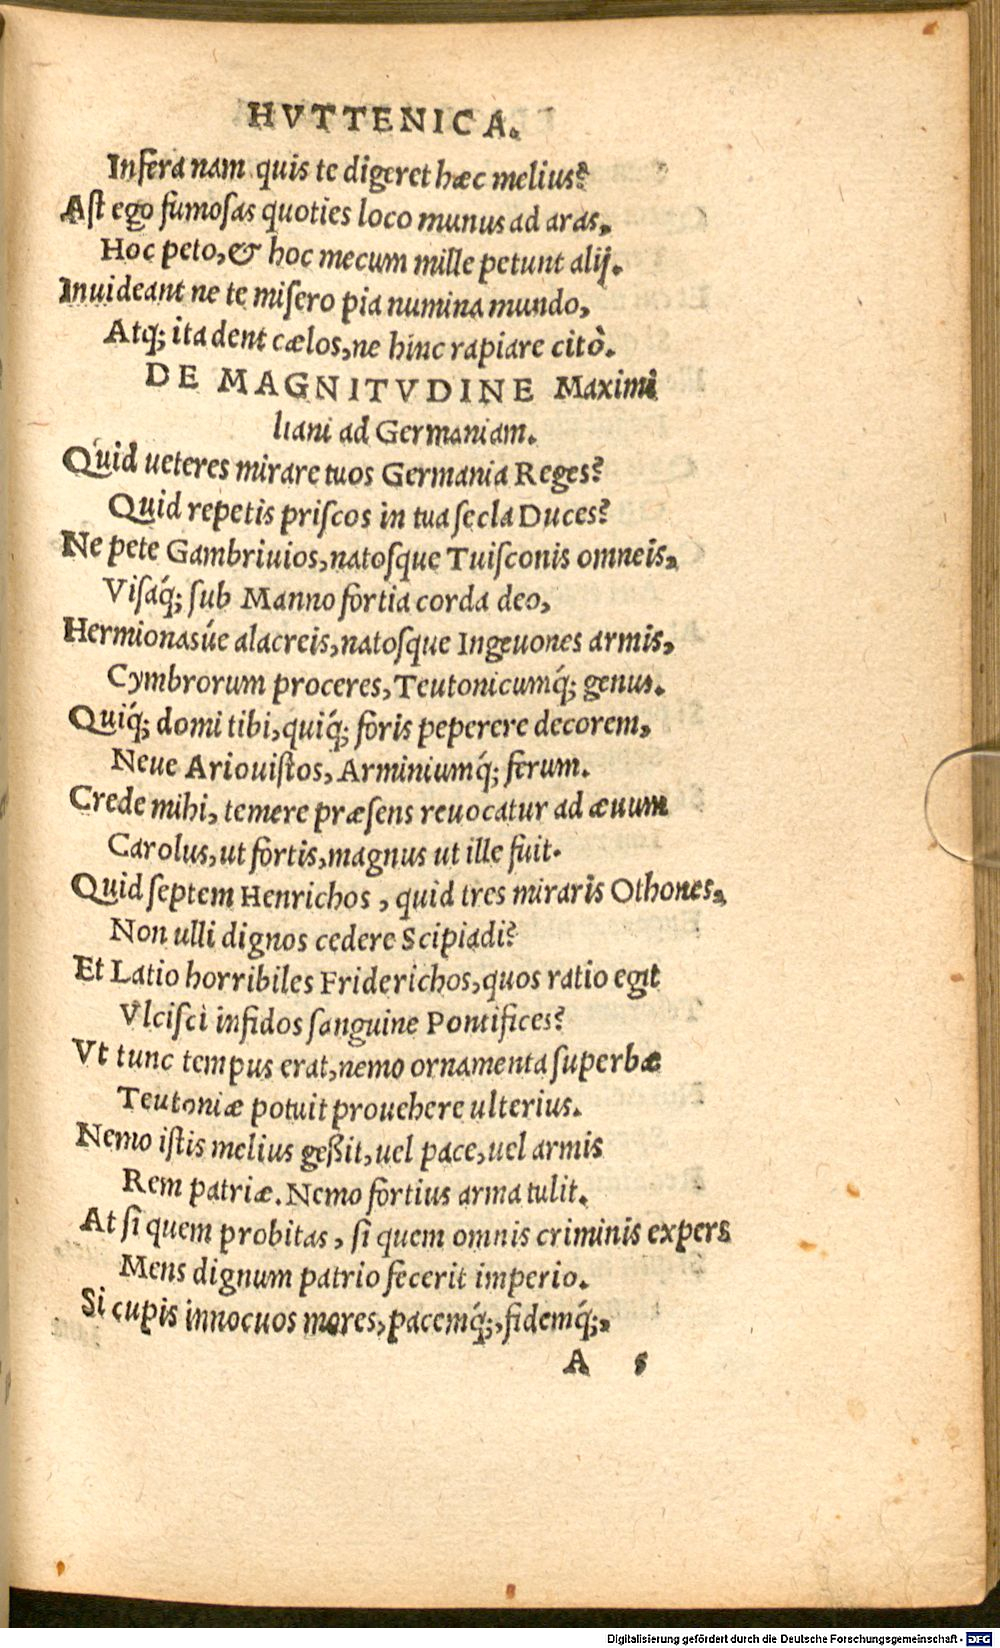 HVTTENICA.
Infera nam quis te digeret hæc melius?
Aſt ego fumoſas quoties loco munus ad aras,
Hoc peto, & hoc mecum mille petunt alij.
Inuideant ne te miſero pia numina mundo,
Atq; ita dent cælos, ne hinc rapiare citò.
DE MAGNITVDINE Maximi
liani ad Germaniam.
Quid ueteres mirare tuos Germania Reges?
Quid repetis priſcos in tua ſecla Duces?
Ne pete Gambriuios, natoſque Tuiſconis omneis,
Viſaq́; ſub Manno fortia corda deo,
Hermionasúe alacreis, natoſque Ingeuones armis,
Cymbrorum proceres, Teutonicumq́; genus.
Quiq́; domi tibi, quiq́; foris peperere decorem,
Neue Ariouiſtos, Arminiumq́; ferum.
Crede mihi, temere præſens reuocatur ad æuum
Carolus, ut fortis, magnus ut ille fuit.
Quid ſeptem Henrichos, quid tres miraris Othones,
Non ulli dignos cedere Scipiadi?
Et Latio horribiles Friderichos, quos ratio egit
Vlciſci infidos ſanguine Pontifices?
Vt tunc tempus erat, nemo ornamenta ſuperbæ
Teutoniæ potuit prouehere ulterius.
Nemo iſtis melius geßit, uel pace, uel armis
Rem patriæ. Nemo fortius arma tulit.
At ſi quem probitas, ſi quem omnis criminis expers
Mens dignum patrio fecerit imperio.
Si cupis innocuos mores, pacemq́;, fidemq́;,
A 5
Digitalisierung gefördert durch die Deutsche Forschungsgemeinschaft - DFG